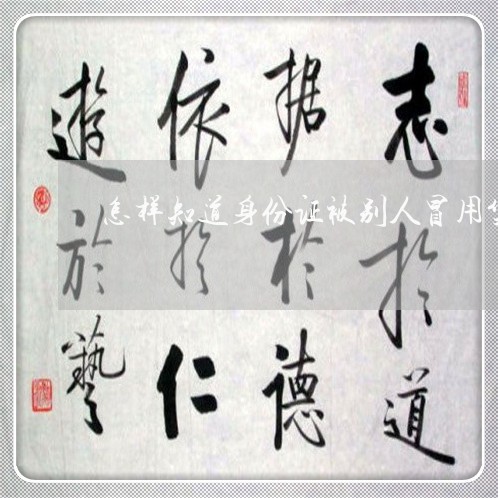 志於道
据於德
依於仁
遊於藝
怎样知道身份证被别人冒用